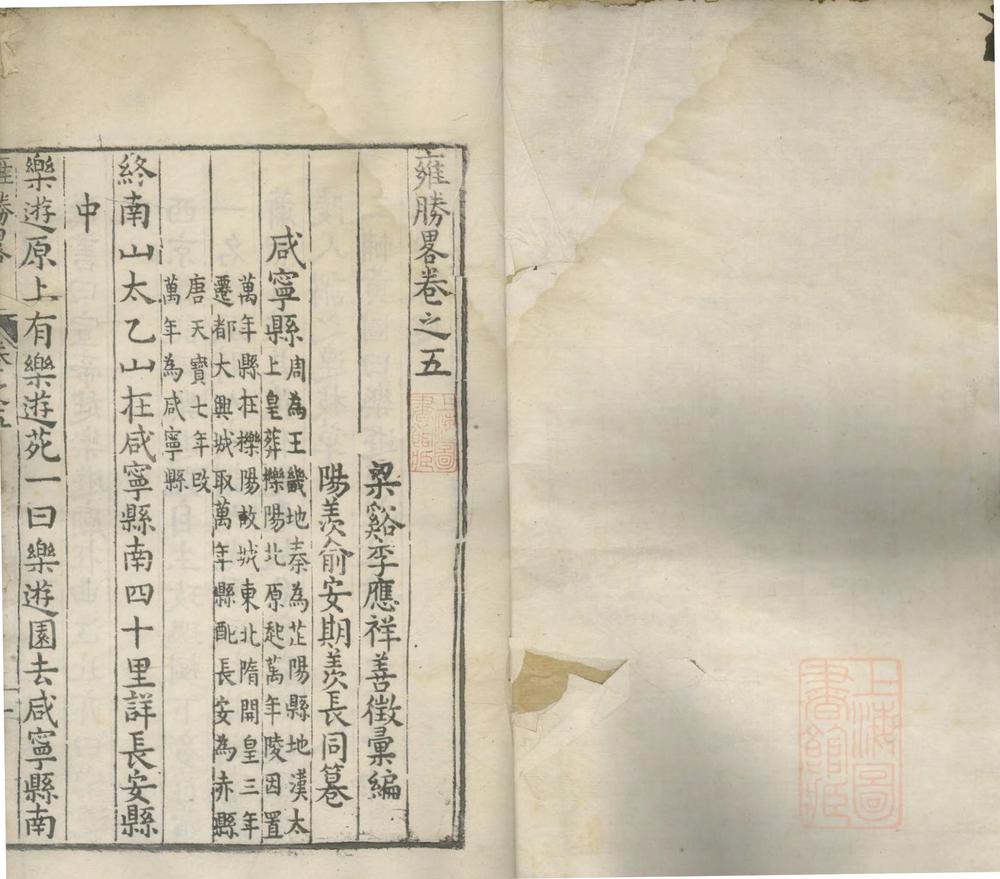 上海圖
書館藏
雍勝畧卷之五
上海圖
書館藏
梁谿李應祥善徵彙編
陽羨俞安期羨長同纂
咸寧縣
周為王畿地秦為芷陽縣地漢太
上皇葬櫟陽北原起萬年陵因置
萬年縣在櫟陽故城東北隋開皇三年
遷都大興城取萬年縣配長安為赤縣
唐天寶七年改
萬年為咸寧縣
終南山太乙山在咸寧縣南四十里詳長安縣
中
樂遊原上有樂遊苑一曰樂遊園去咸寧縣南